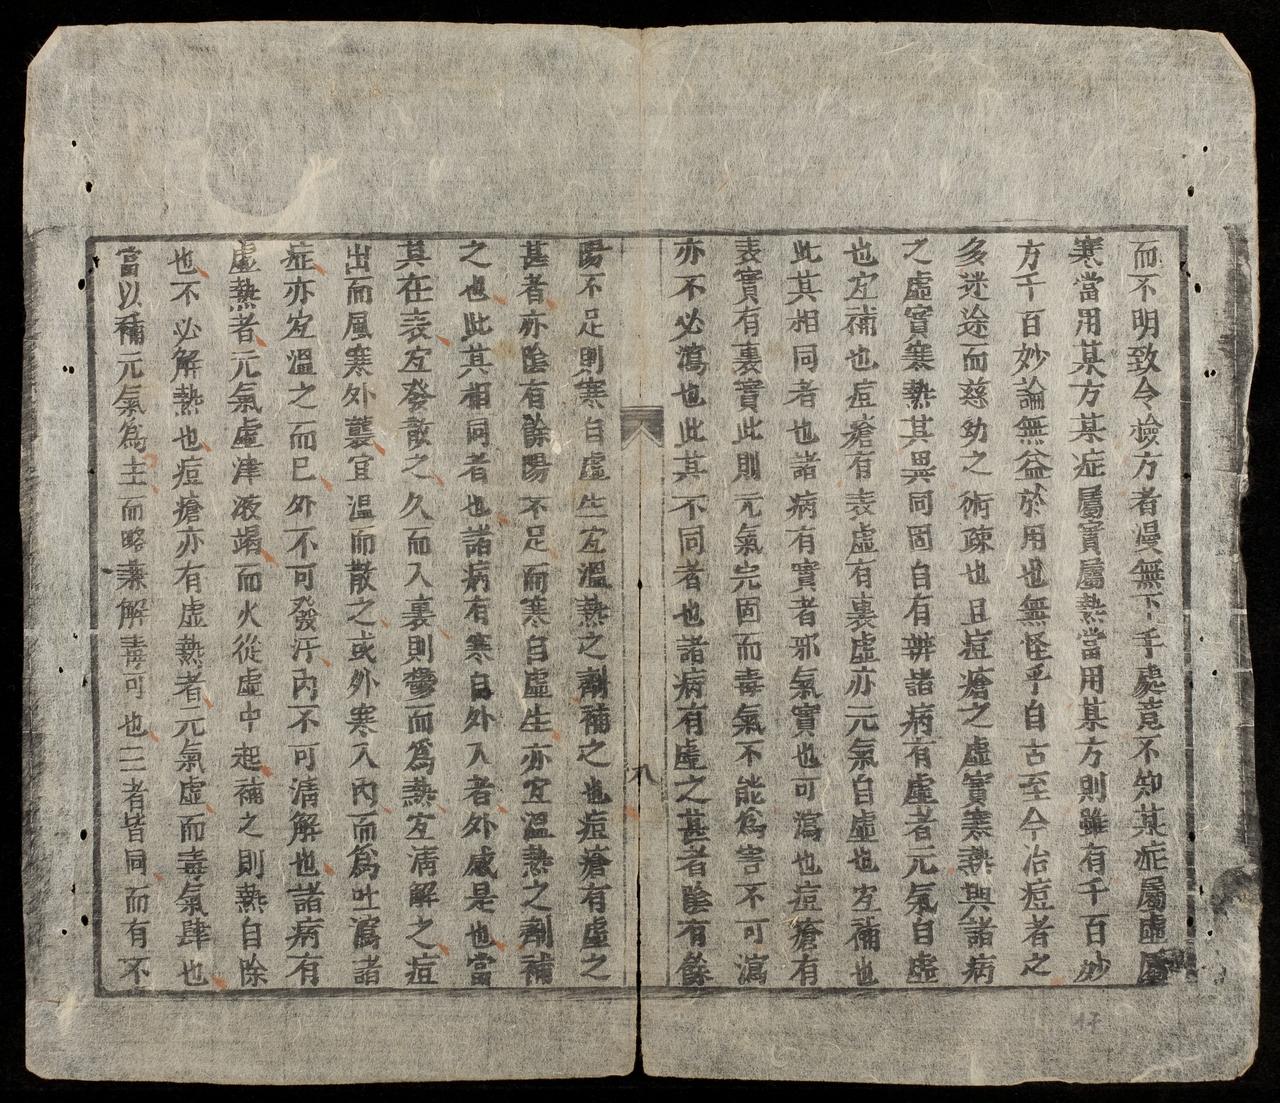 而不明致令檢方者漫無下手處竟不知某症屬虛屬
寒當用某方某症屬實屬熱當用某方則雖有千百妙
方千百妙論無益於用也無怪乎自古至今治痘者之
多迷途而慈幼之術疎也且痘瘡之虛實寒熱與諸病
之虛實寒熱其異同固自有辨諸病有虛者元氣自虛
也宐補也痘瘡有表虛有裏虛亦元氣自虛也宐補也
此其相同者也諸病有實者邪氣實也可瀉也痘瘡有
表實有裏實此則元氣完固而毒氣不能為害不可瀉
亦不必瀉也此其不同者也諸病有虛之甚者陰有餘
陽不足則寒自虛生宐溫熱之劑補之也痘瘡有虛之
甚者亦陰有餘陽不足而寒自虛生亦宐溫熱之劑補
之也此其相同者也諸病有寒自外入者外感是也當
其在表宐發散之久而入裏則鬱而為熱宐清解之痘
出而風寒外襲宜溫而散之或外寒入內而為吐瀉諸
症亦宐溫之而已外不可發汗內不可清解也諸病有
虛熱者元氣虛津液竭而火從虛中起補之則熱自除
也不必解熱也痘瘡亦有虛熱者元氣虛而毒氣肆也
當以補元氣為主而略兼解毒可也三者皆同而有不
八
17